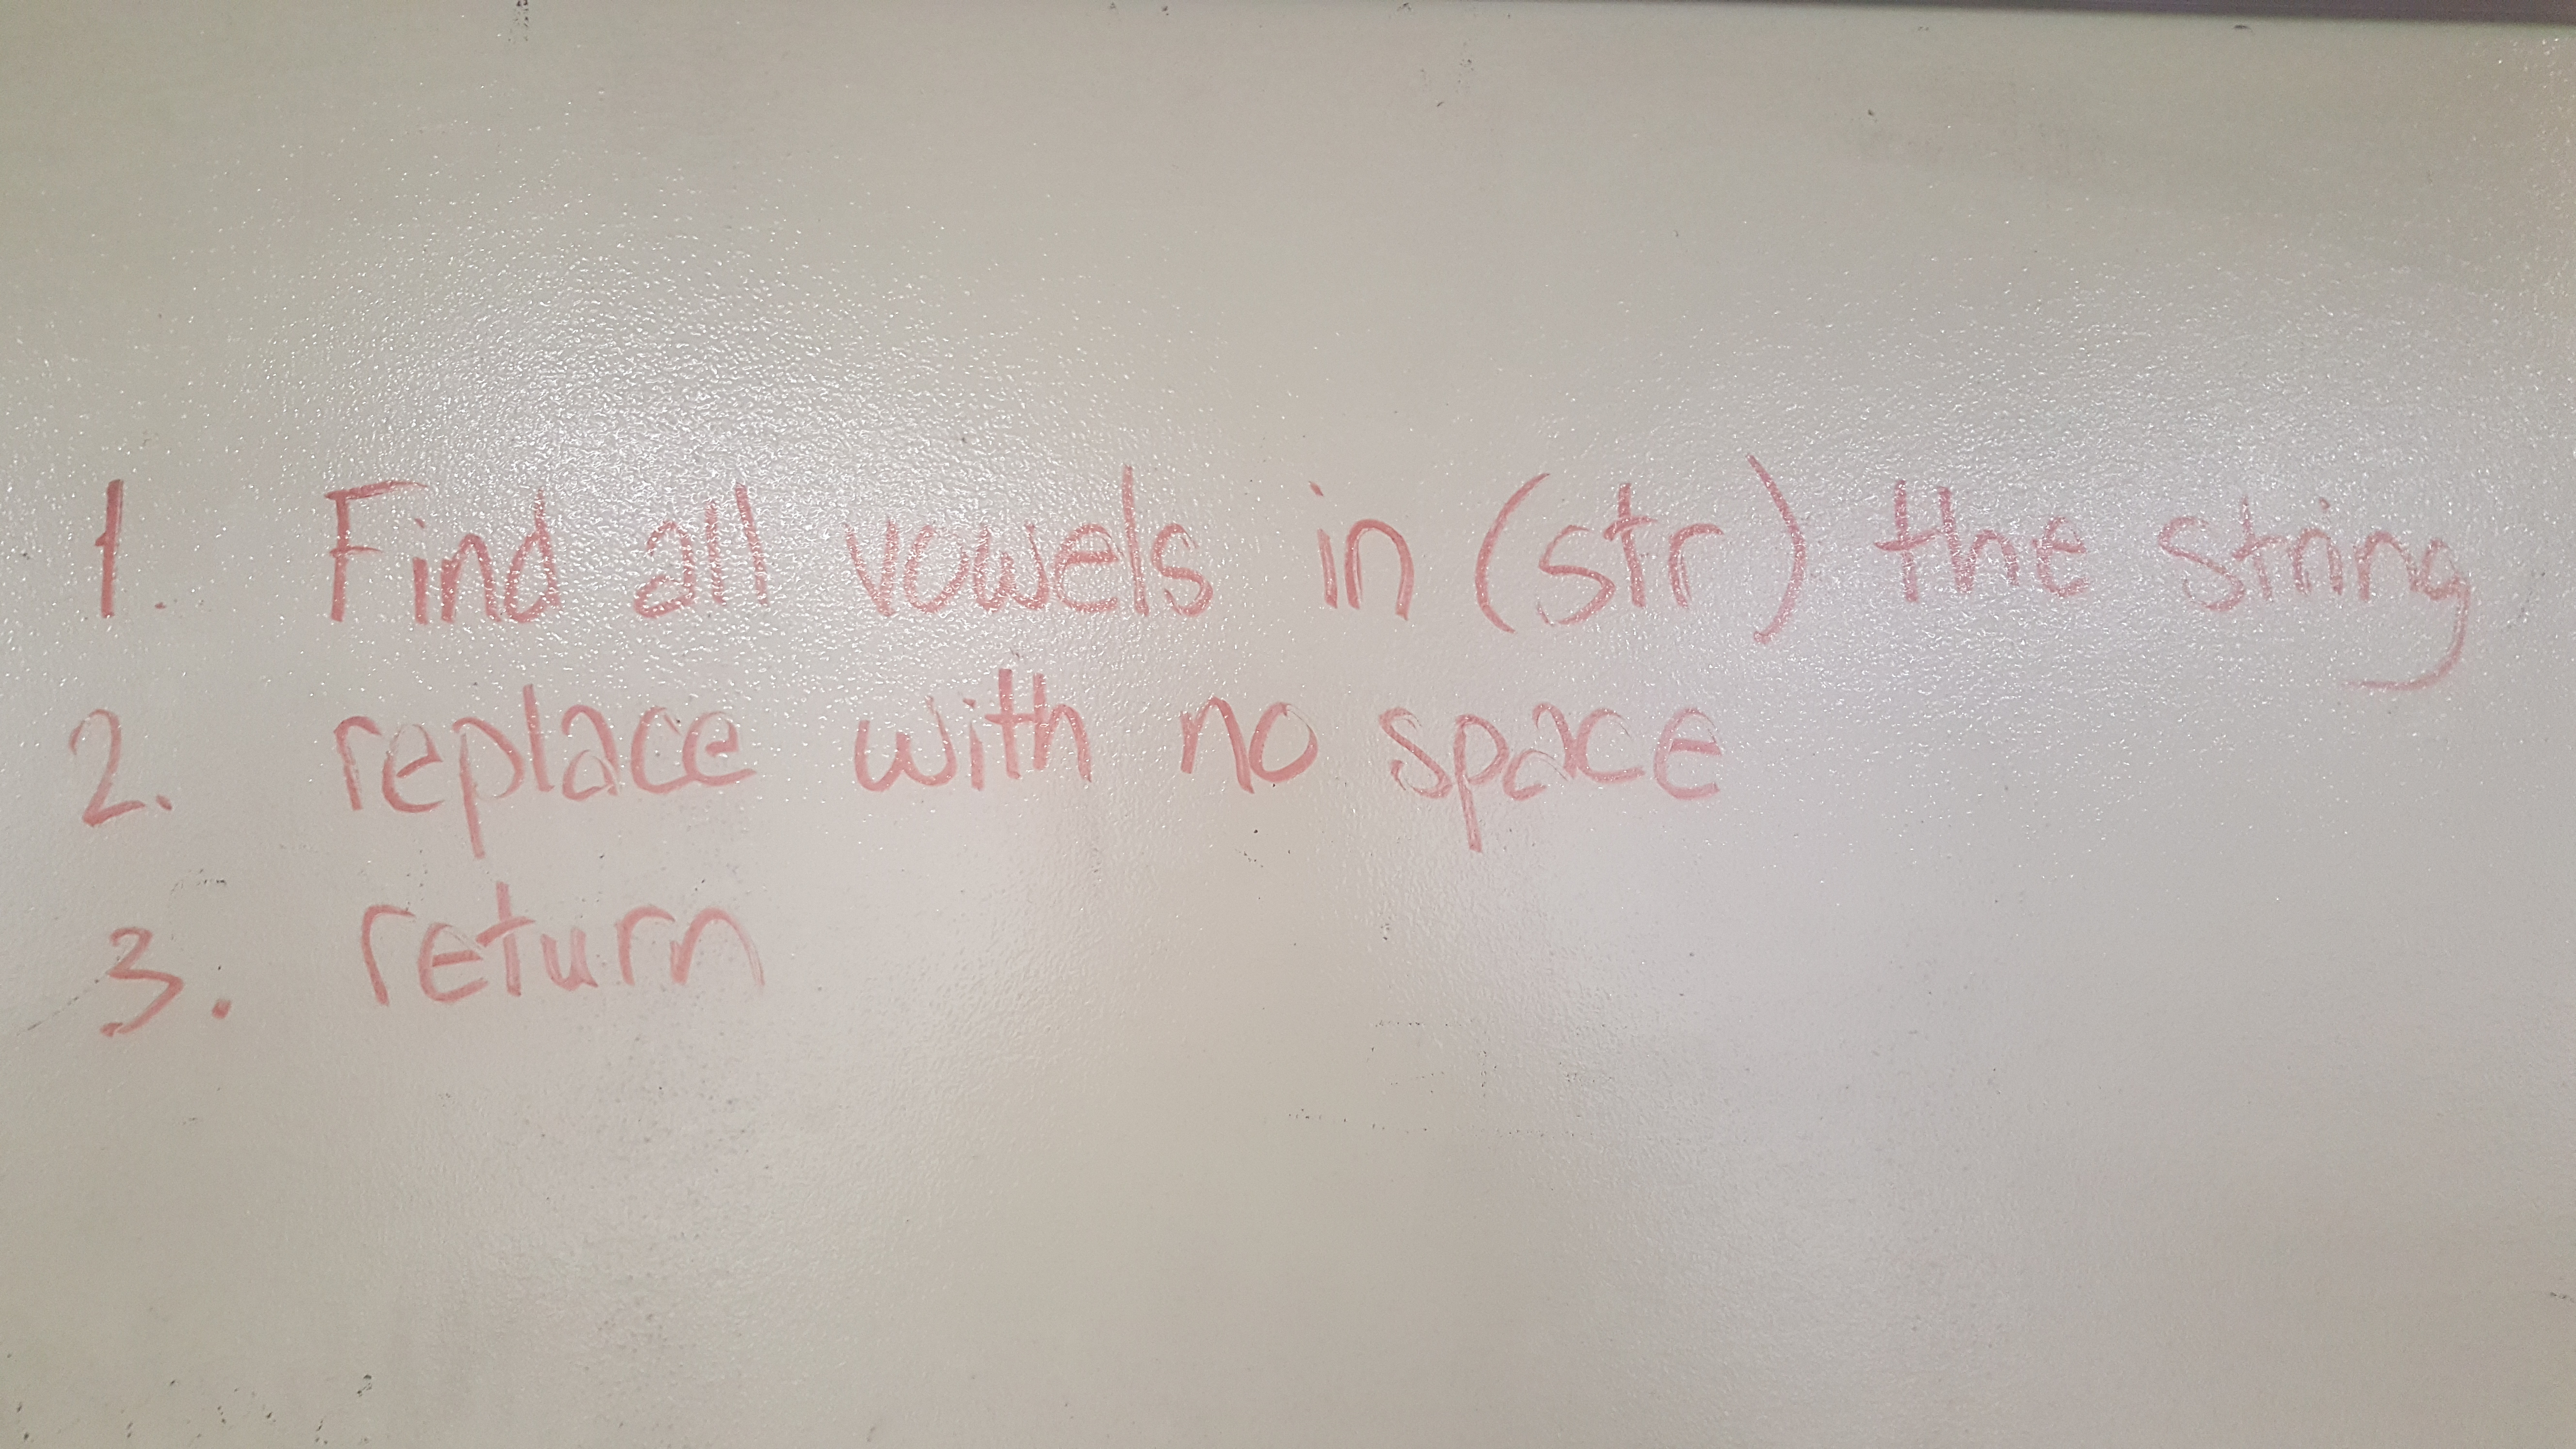 1. Find all vowels in (str) the string
2. replace with no space
3. return